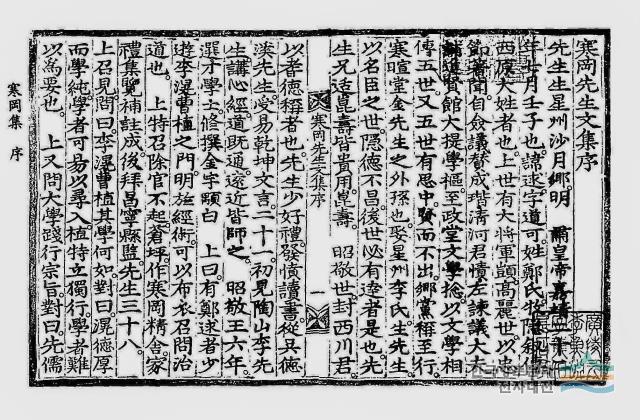 寒岡先生文集序
先生生星州沙月鄕明 肅皇帝嘉靖
年七月壬子也諱逑字道可姓鄭氏
西原大姓者也上世有大將軍顗高麗世以
節著聞自僉議贊成瑎淸河君𢢜左諫議大夫
誧進賢館大提學樞至政堂文學摠以文學相
傳五世又五世有思中賢而不出鄕黨稱至行
寒暄堂金先生之外孫也娶星州李氏生先生
以名臣之世隱德不昌後世必有達者是也先
生兄适崑壽皆貴用崑壽 昭敬世封西川君
寒岡先生文集序 一
以耆德稱者也先生少好禮發憤讀書從吳德
溪先生受易乾坤文言二十一初見陶山李先
生講心經道旣通遠近皆師之 昭敬王六年
選才學士修撰金宇顒白 上曰有鄭逑者少
遊李滉曹植之門明於經術可以布衣召問治
道也 上特召除官不起蒼坪作寒岡精舍家
禮集覽補註成後拜昌寧縣監先生三十八
上召見問曰李滉曹植其學何如對曰滉德厚
而學純學者可易以尋入植特立獨行學者難
以爲要也 上又問大學踐行宗旨對曰先儒
寒岡集 序
전자대전